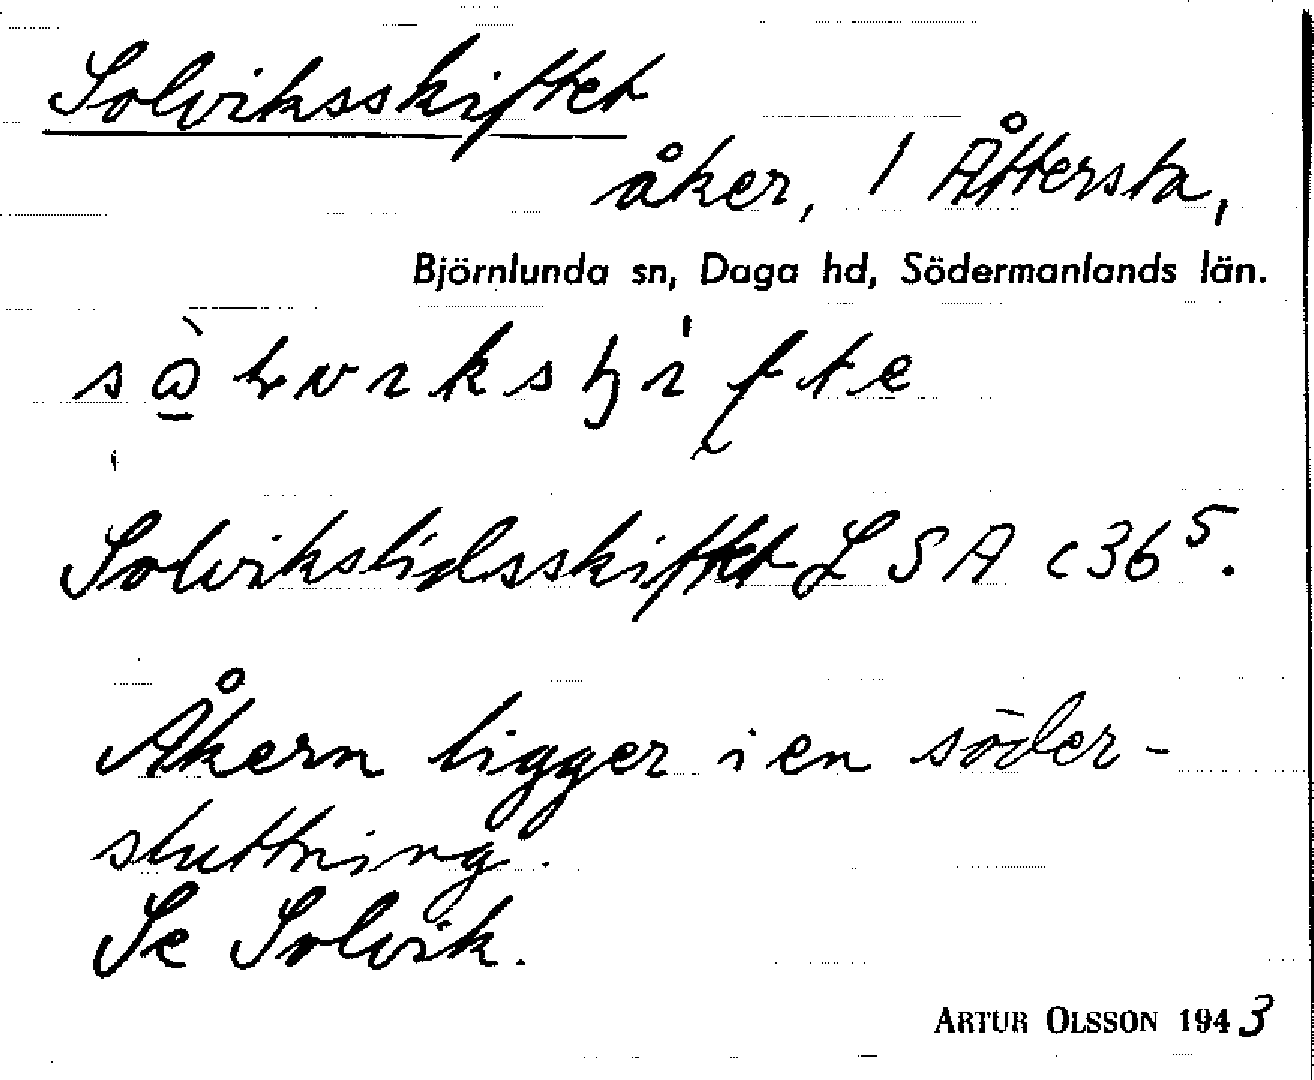 Solviksskiftet
åker, 1 Åttersta,
Björnlunda sn, Daga hd, Södermanlands län.
Solvikslidsskiftet LSA c36⁵.
Åkern ligger i en söder-
sluttning.
Se Solvik.
ARTUR OLSSON 1943